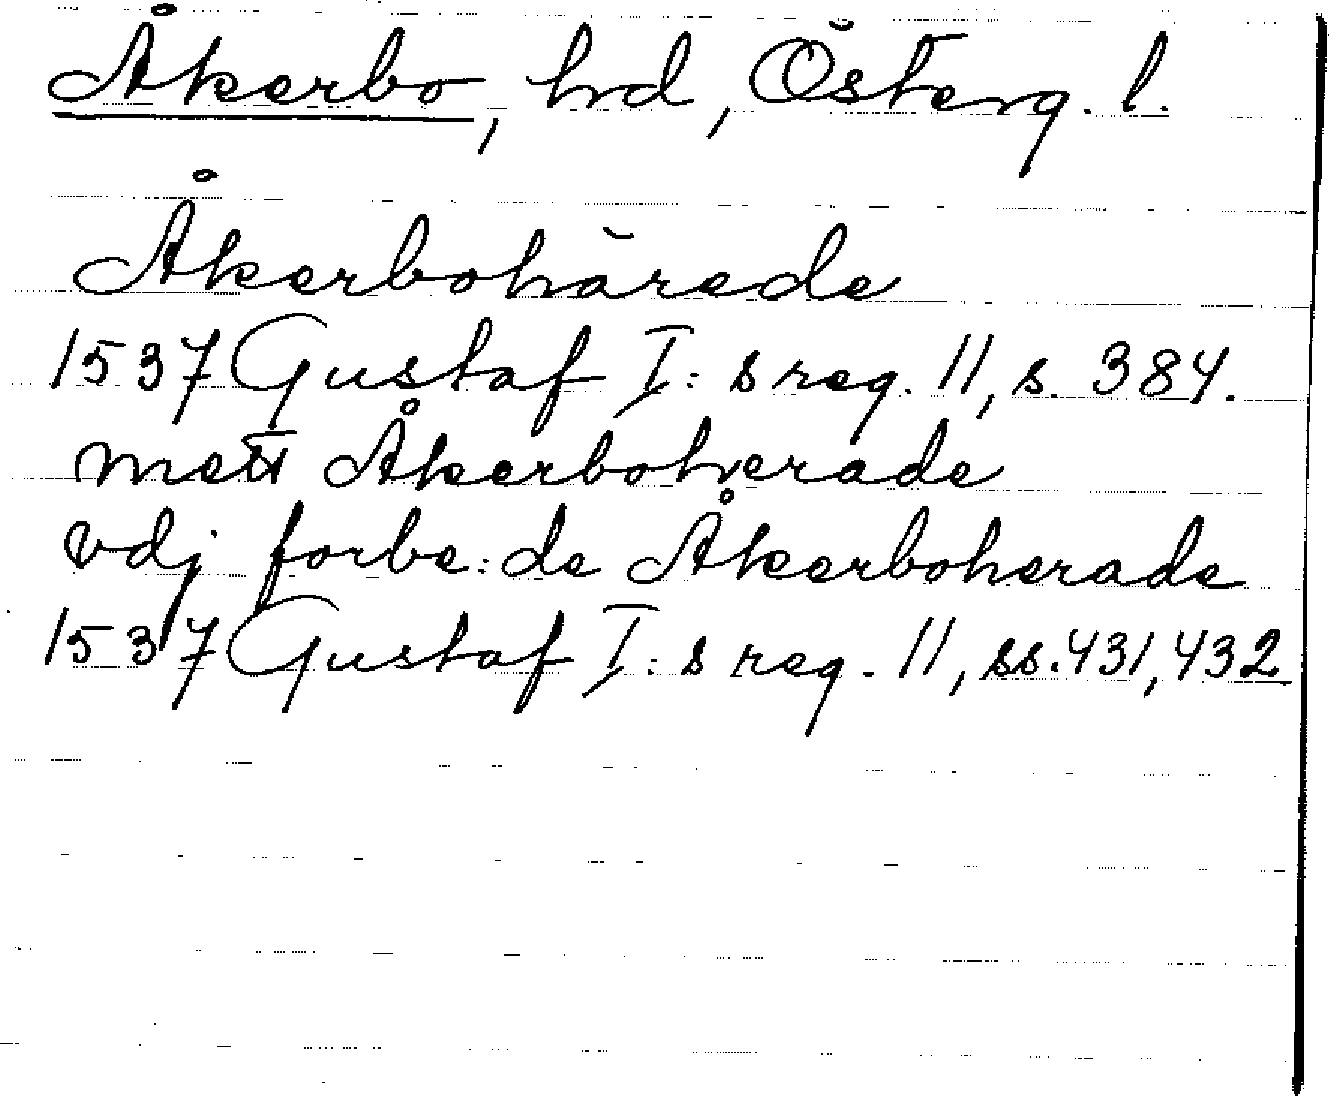 Åkerbo, hd, Österg. l.
Åkerbohärede
1537 Gustaf I:s reg. 11, s. 384.
mett Åkerboherade
vdj forbe:de Åkerboherade
1537 Gustaf I:s reg. 11, ss. 431, 432